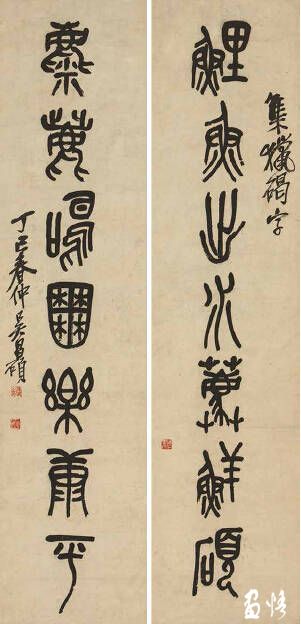 集獵碣字
鯉魚出水鮮碩
麋鹿鳴囿樂康平
丁巳春仲吳昌碩